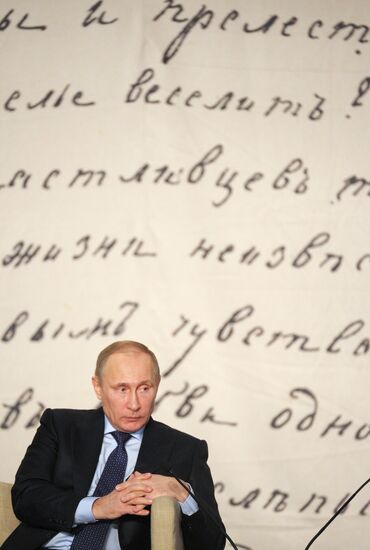 ы и прелест
елье веселитъ?
астливцевъ т
жизни неизвѣс
вымъ чувство
въ одно